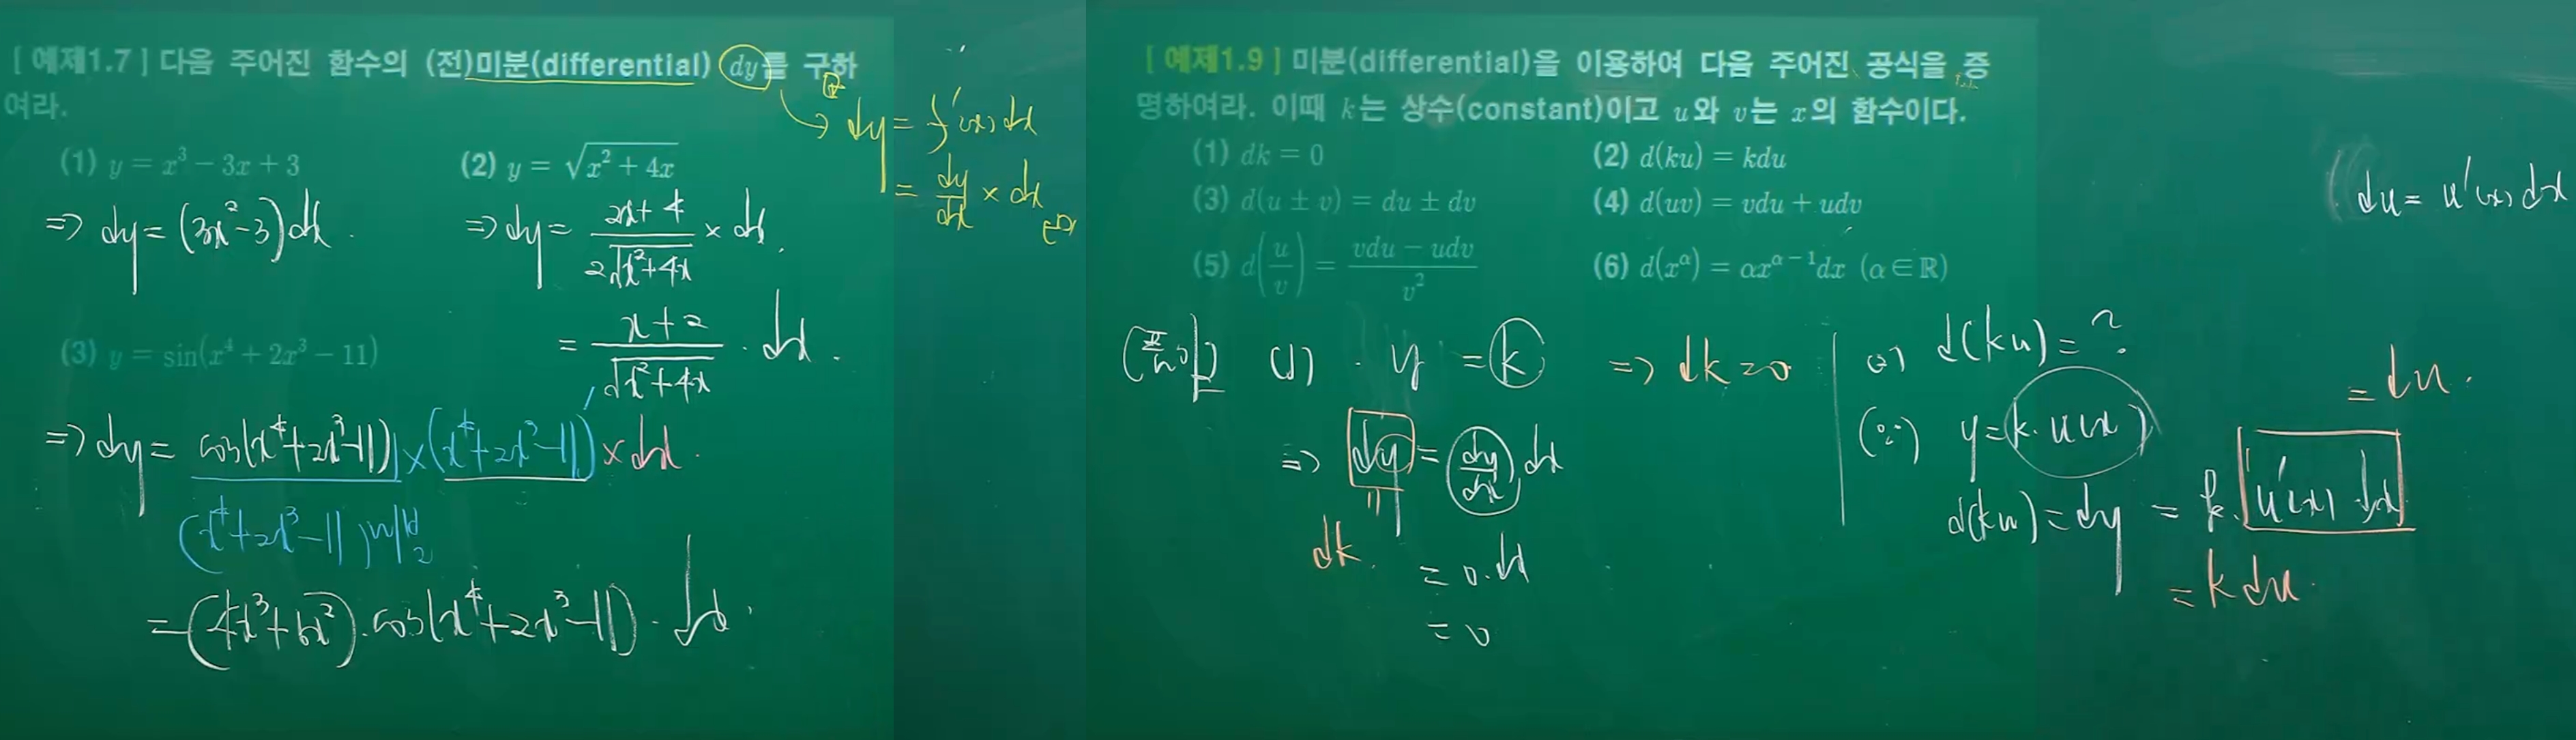 [ 예제1.7 ] 다음 주어진 함수의 (전)미분(differential) dy를 구하
여라.
dy = f'(x) dx
= dy/dx × dx
(1) y = x³ − 3x + 3
(2) y = √(x² + 4x)
⇒ dy = (3x² − 3) dx.
⇒ dy = (2x + 4)/(2√(x² + 4x)) × dx.
= (x + 2)/√(x² + 4x) · dx.
(3) y = sin(x⁴ + 2x³ − 11)
⇒ dy = cos(x⁴ + 2x³ − 11) × (x⁴ + 2x³ − 11)' × dx.
= (4x³ + 6x²) · cos(x⁴ + 2x³ − 11) · dx.
[ 예제1.9 ] 미분(differential)을 이용하여 다음 주어진 공식을 증
명하여라. 이때 k는 상수(constant)이고 u와 v는 x의 함수이다.
(1) dk = 0
(2) d(ku) = kdu
(3) d(u ± v) = du ± dv
(4) d(uv) = vdu + udv
(5) d(u/v) = (vdu − udv)/v²
(6) d(x^α) = αx^(α−1)dx (α∈ℝ)
du = u'(x) dx
(1) · y = k ⇒ dk = 0
⇒ dy = dy/dx dx
dk
= 0·dx
= 0
(2) d(ku) = ?
(∵) y = k·u(x)
= du.
d(ku) = dy = k·u'(x) dx
= k du.